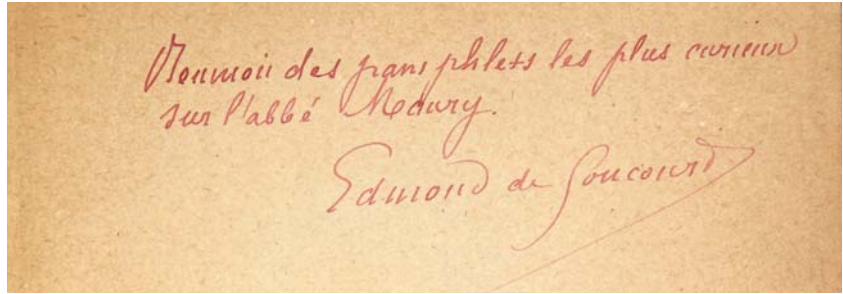 Réunion des pamphlets les plus curieux
sur l'abbé Maury.
Edmond de Goncourt